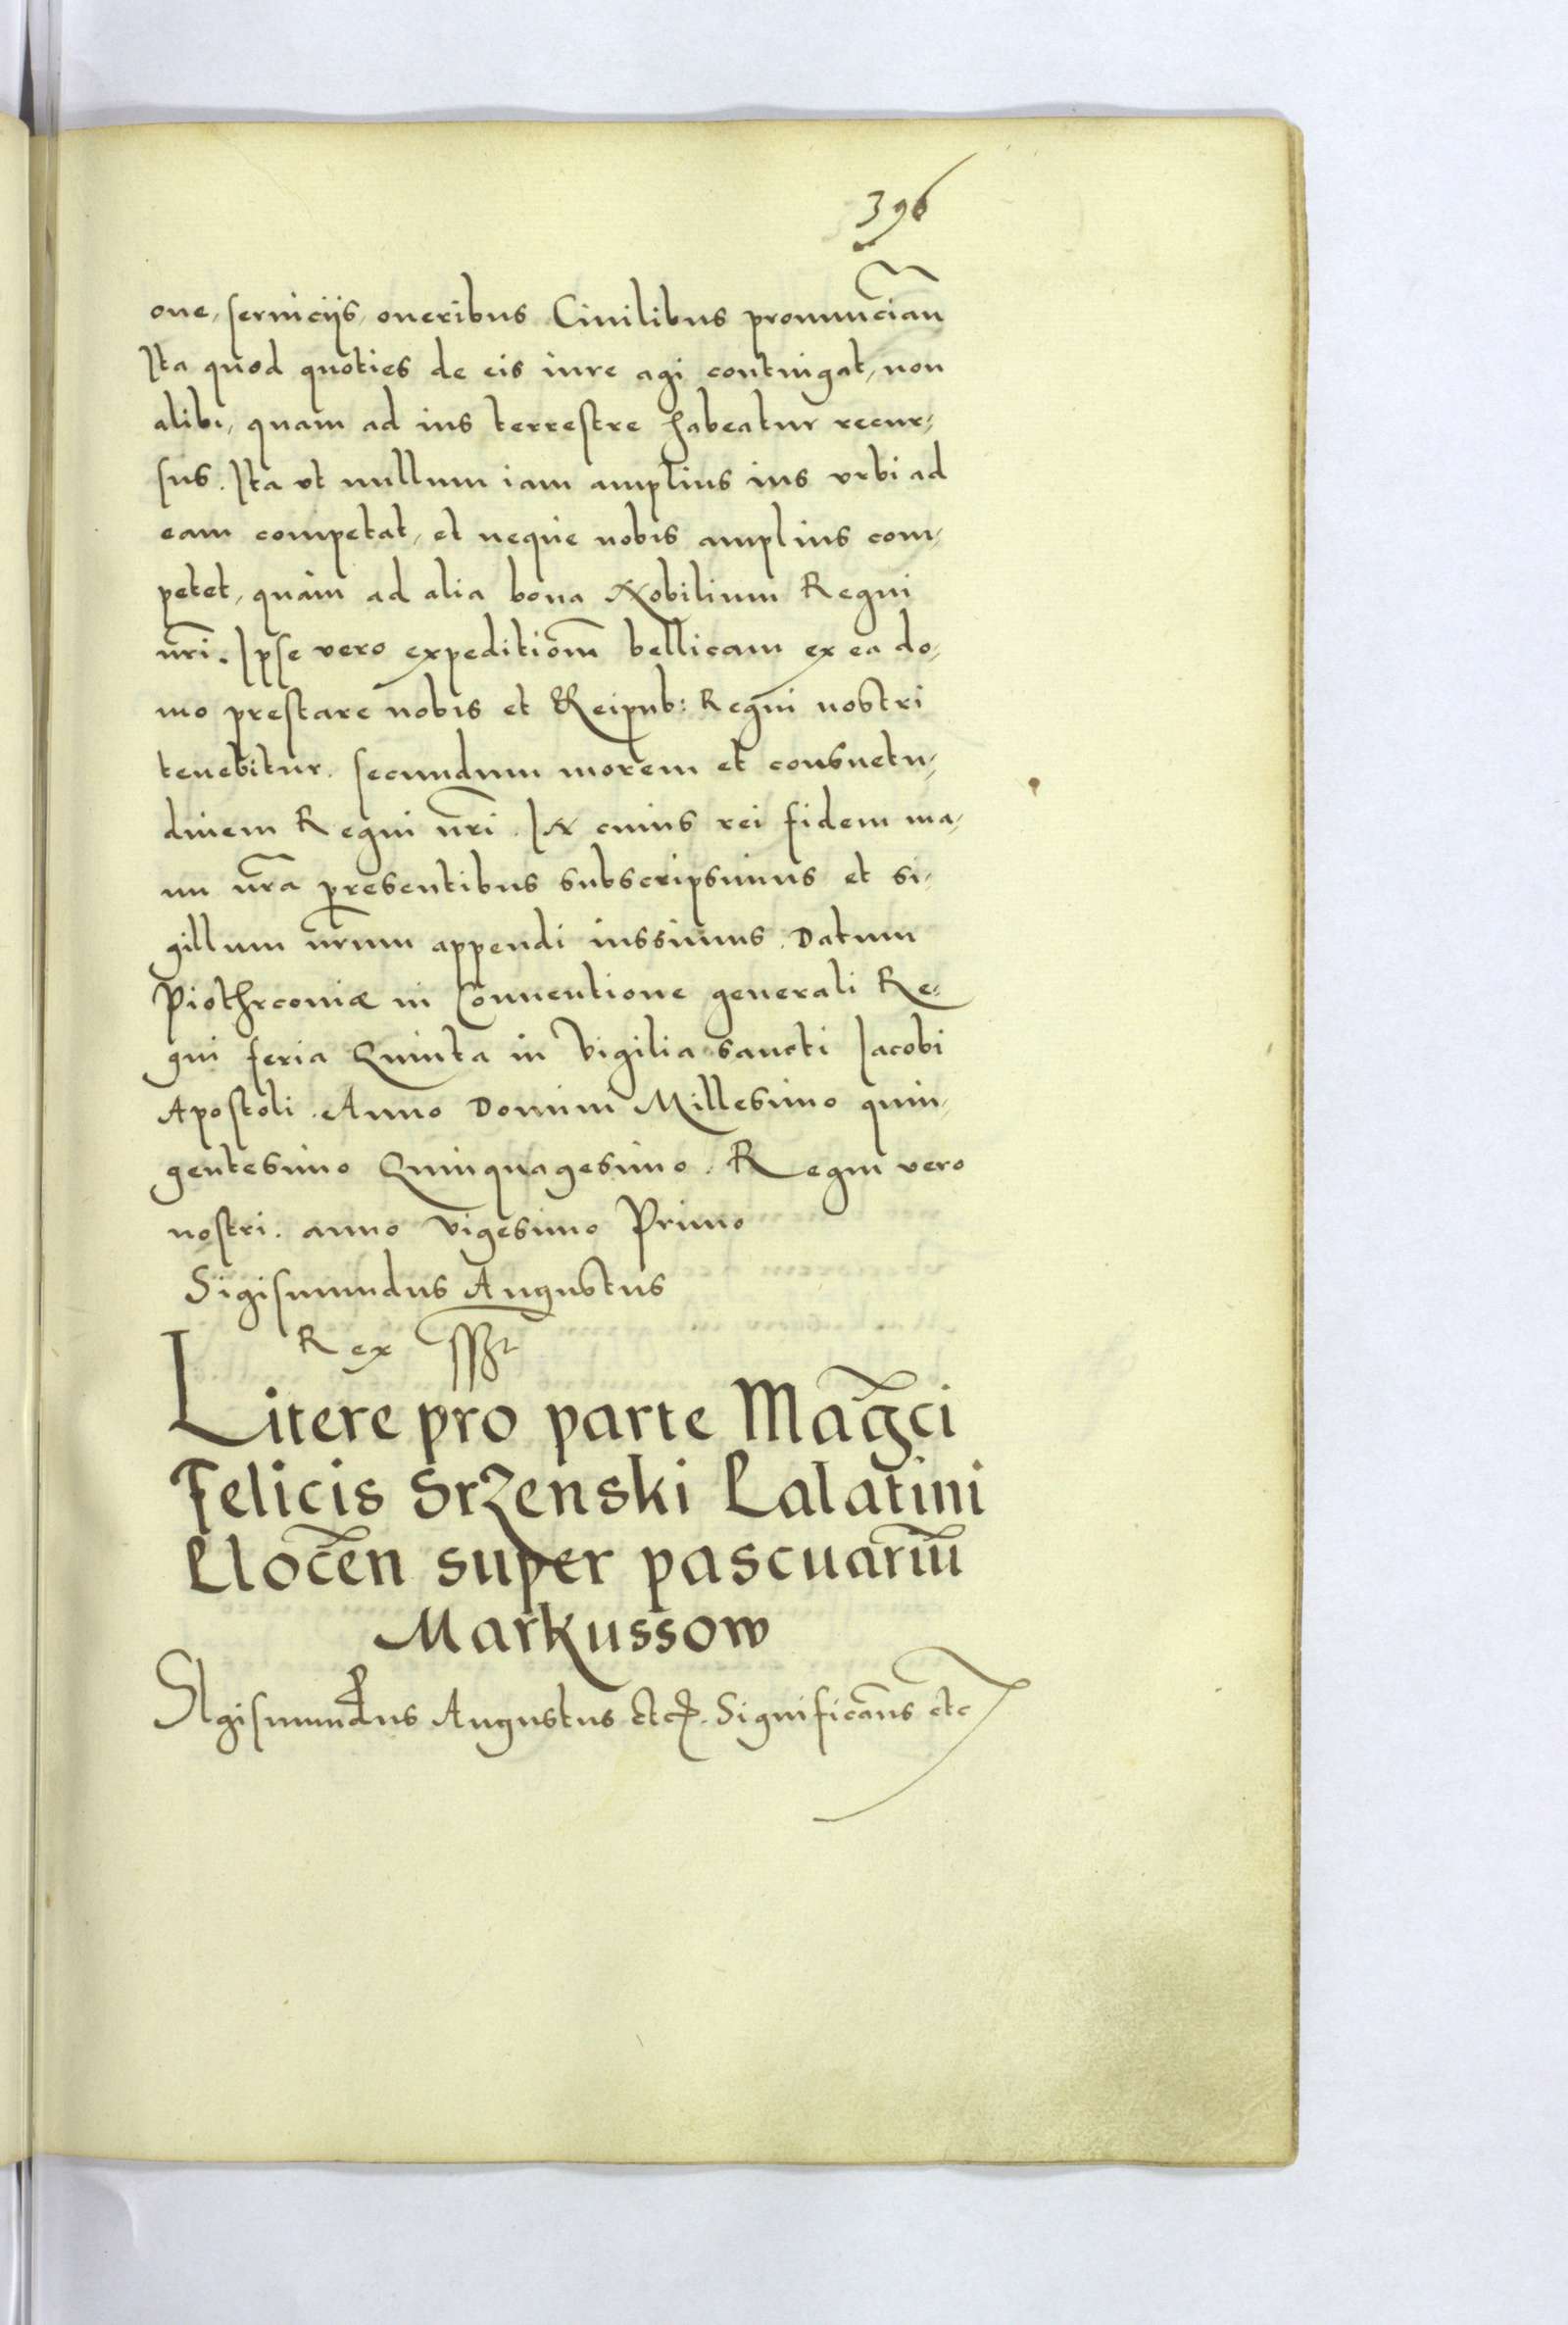 396
one, seruiciis, oneribus Ciuilibus pronuncian̄
Ita quod quoties de eis iure agi contingat, non
alibi, quam ad ius terrestre habeatur recur-
sus. Ita vt nullum iam amplius ius vrbi ad
eam competat, et neque nobis amplius com-
petet, quàm ad alia bona Nobilium Regni
nr̄i. Ipse vero expeditiom̄ bellicam ex ea do-
mo prestare nobis et Reipub: Regni nostri
tenebitur. secundum morem et consuetu-
dinem Regni nr̄i. IN cuius rei fidem ma-
nu nr̄a presentibus subscripsimus et si-
gillum nr̄um appendi iussimus. Datum
Piothrconiæ in Conuentione generali Re-
gni feria Quinta in Vigilia sancti Iacobi
Apostoli. Anno Domini Millesimo quin-
gentesimo Quinquagesimo. Regni vero
nostri. anno vigesimo Primo
Sigismundus Augustus
Rex sszt
Litere pro parte Maḡci
Felicis Srzenski Palatini
Ploceн̄ super pascuariū
Markussow
SIgismundus Augustus etc. Significam̄s etc